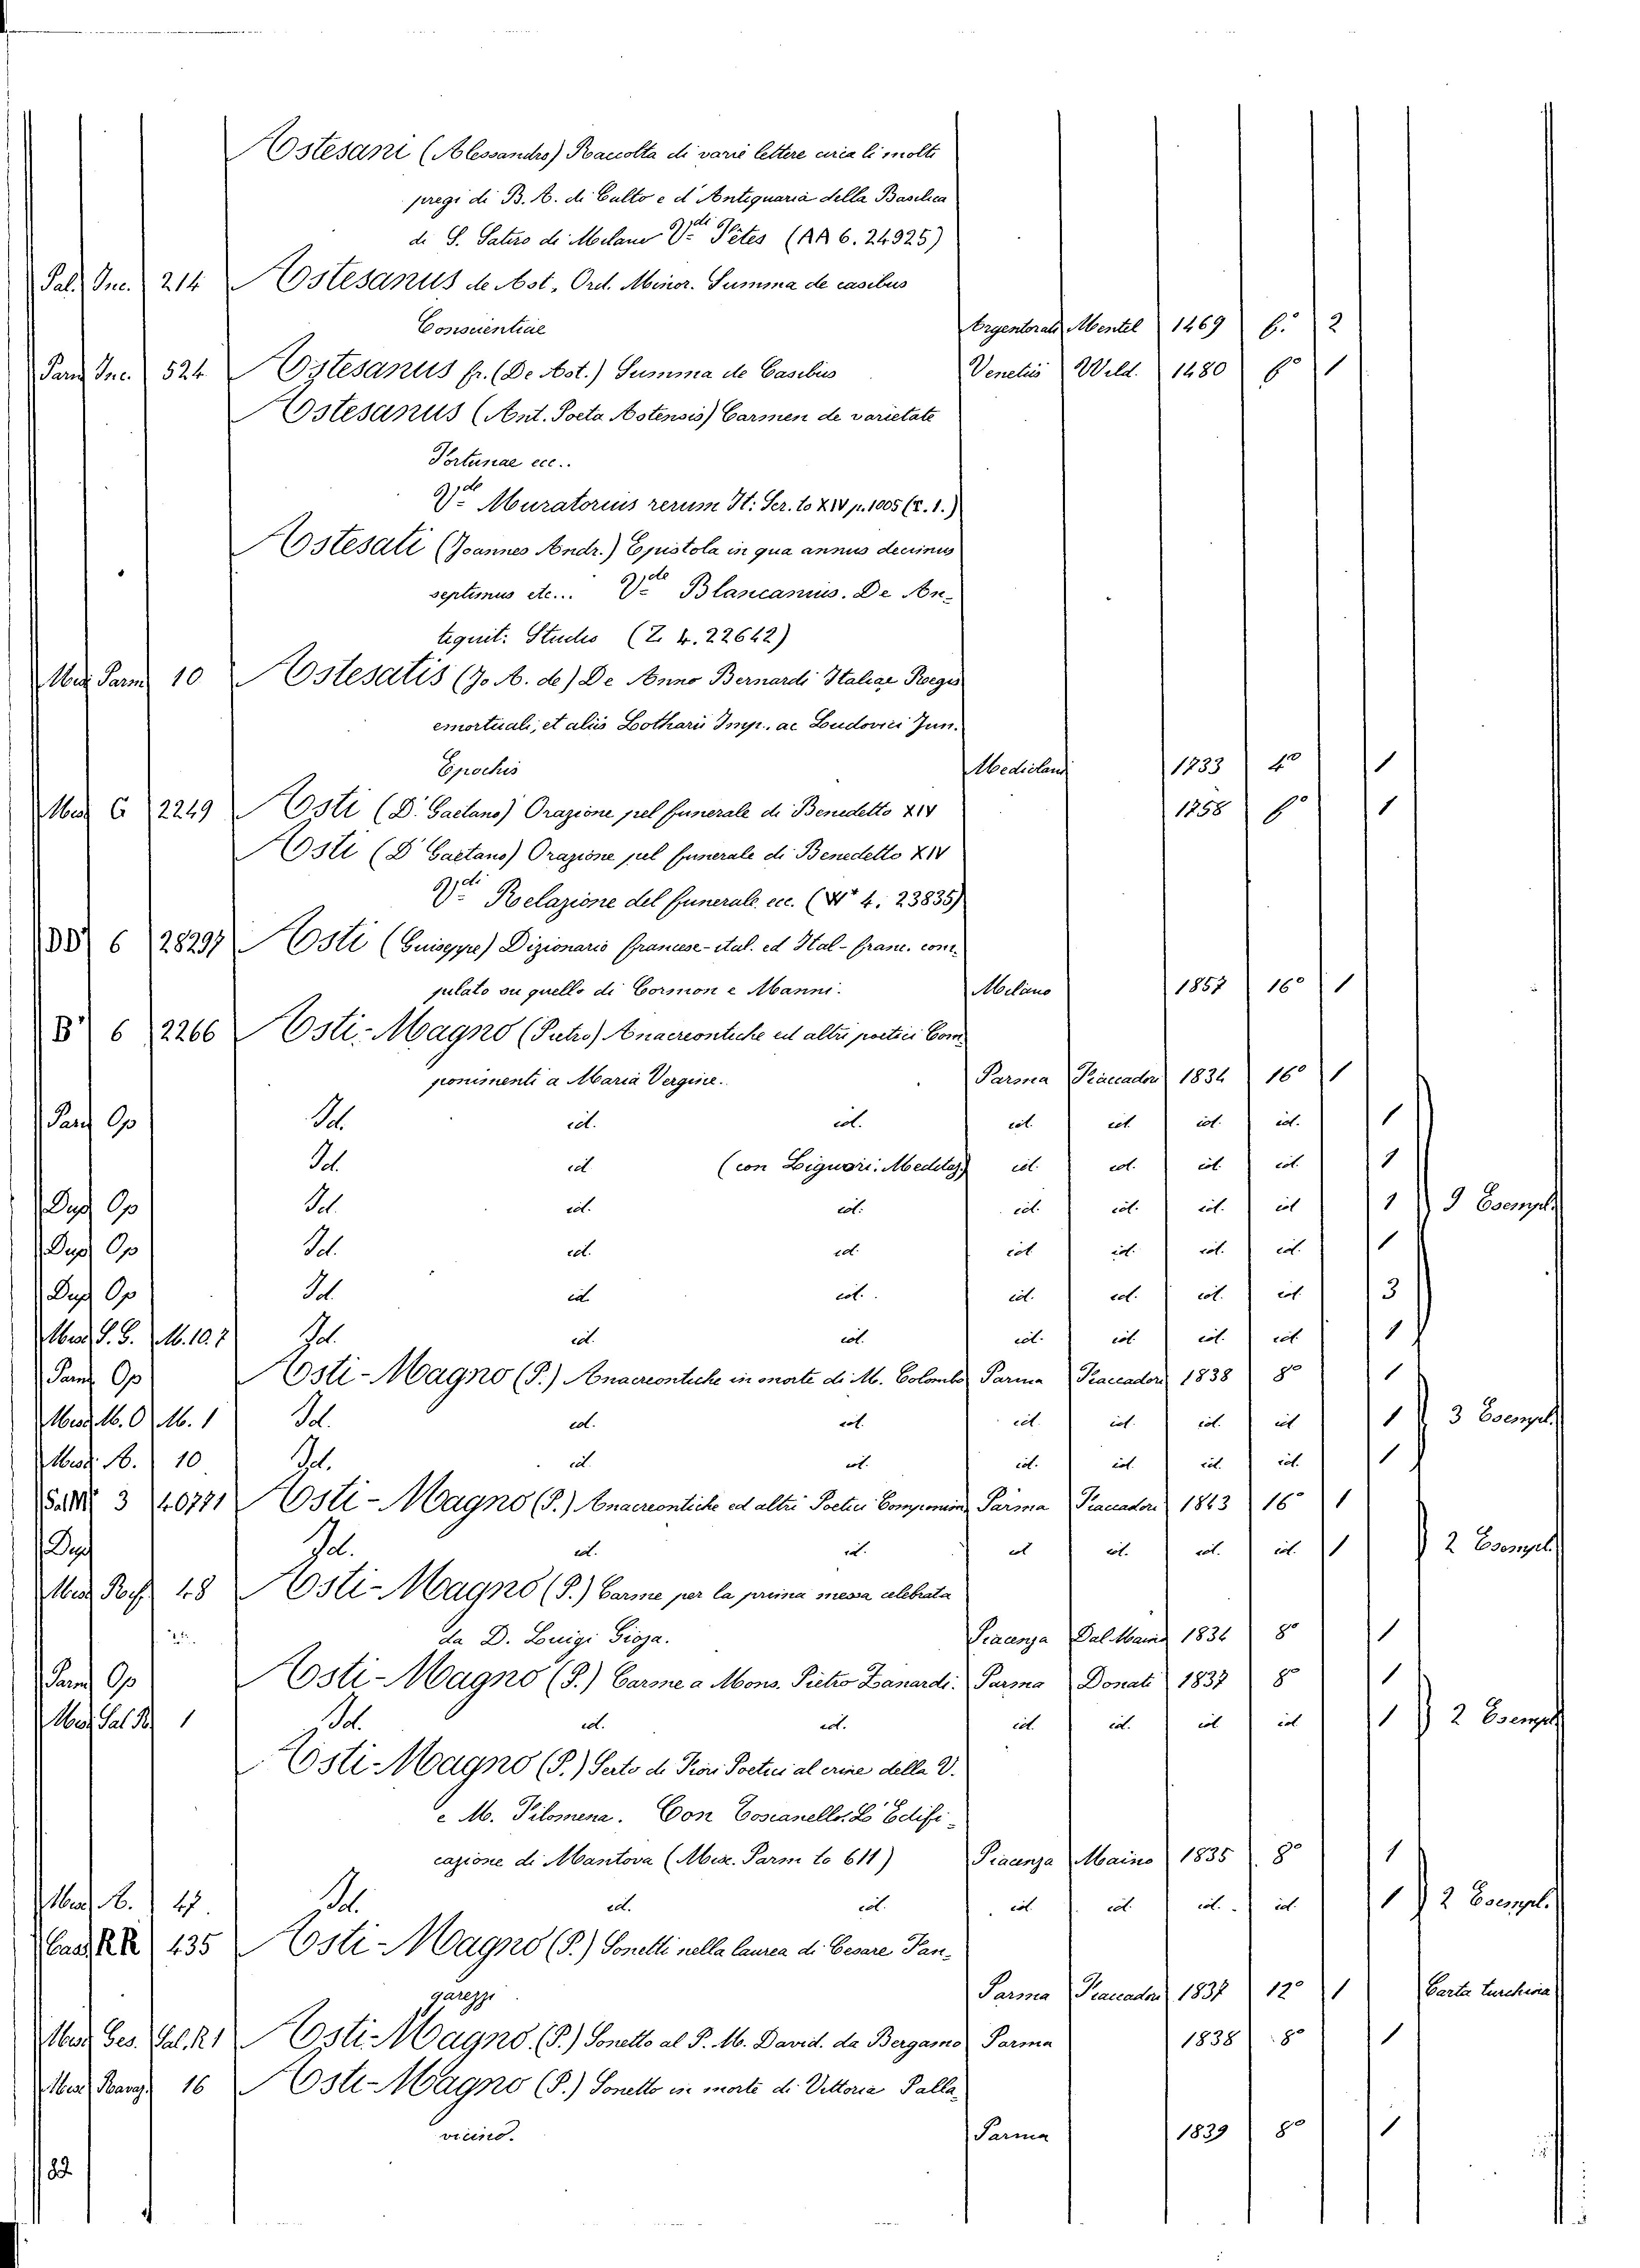 Astesani (Alessandro) Raccolta di varie lettere circa li molti
pregi di B. A. di Culto e d'Antiquaria della Basilica
di S. Satiro di Milano V.di Fètes (AA 6. 24925)
Pal. Inc. 214 Astesanus de Ast, Ord. Minor. Summa de casibus
Conscientiae Argentorati Mentel 1469 f.° 2
Parm Inc. 524 Astesanus fr. (De Ast.) Summa de Casibus Venetiis Wild. 1480 f° 1
Astesanus (Ant. Poeta Astensis) Carmen de varietate
Fortunae ecc..
V.de Muratorius rerum It: Scr. to XIV p. 1005 (E. 1.)
Astesati (Joannes Andr.) Epistola in qua annus decimus
septimus etc... V.de Blancanus. De An-
tiquit: Studio (Z. 4. 22642)
Misc Parm 10 Astesatis (Jo. A. de) De Anno Bernardi Italiae Regis
emortuali, et aliis Lotharii Imp. ac Ludovici Jun.
Epochis Medioland 1733 4° 1
Misc G 2249 Asti (D. Gaetano) Orazione pel funerale di Benedetto XIV 1758 f° 1
Asti (D. Gaetano) Orazione pel funerale di Benedetto XIV
V.di Relazione del funerale ecc. (W* 4. 23835)
DD' 6 28297 Asti (Guiseppe) Dizionario francese-ital. ed Ital-franc. com-
pilato su quello di Cormon e Manni. Milano 1857 16° 1
B' 6 2266 Asti-Magno (Pietro) Anacreontiche ed altri poetici Com-
ponimenti a Maria Vergine. Parma Fiaccadori 1834 16° 1
Parm Op Id. id. id. id. id. id. id. 1
Id. id. (con Liguori: Meditaz) id. id. id. id. 1
Dup Op Id. id. id. id. id. id. id 1 9 Esempl.
Dup Op Id. id. id. id id. id. id. 1
Dup Op Id. id. id. id. id. id. id. 3
Misc S. B. M. 107 Id. id. id. id. id. id. id. 1
Parm Op Asti-Magno (P.) Anacreontiche in morte di M. Colombo Parma Fiaccadori 1838 8° 1
Misc M. O M. 1 Id. id. id. id. id. id. id 1 3 Esempl.
Misc. A. 10 Id. id. id. id. id. id. id. 1
Sal. M' 3 40771 Asti-Magno (P.) Anacreontiche ed altri Poetici Componim. Parma Fiaccadori 1843 16° 1
Dup Id. id. id. id id. id. id. 1 2 Esempl.
Misc 48 Asti-Magno (P.) Carme per la prima messa celebrata
da D. Luigi Gioja. Piacenza Dal Maino 1834 8° 1
Parm Op Asti-Magno (P.) Carme a Mons. Pietro Zanardi. Parma Donati 1837 8° 1
Misc Sal R 1 Id. id. id. id. id. id id 1 2 Esempl.
Asti-Magno (P.) Serto di Fiori Poetici al crine della V.
e M. Filomena. Con Coscanello. L'Edifi-
cazione di Mantova (Misc. Parm to 611) Piacenza Maino 1835 8° 1
Misc A. 47. Id. id. id. id. id. id. id. 1 2 Esempl.
Cas RR 435 Asti-Magno (P.) Sonetti nella laurea di Cesare Pan-
garezzi Parma Fiaccadori 1837 12° 1 Carta turchina
Misc Ges. Sal. R1 Asti-Magno. (P.) Sonetto al P. M. David. da Bergamo Parma 1838 8° 1
Misc 16 Asti-Magno (P.) Sonetto in morte di Vittoria Palla-
vicino. Parma 1839 8° 1
82